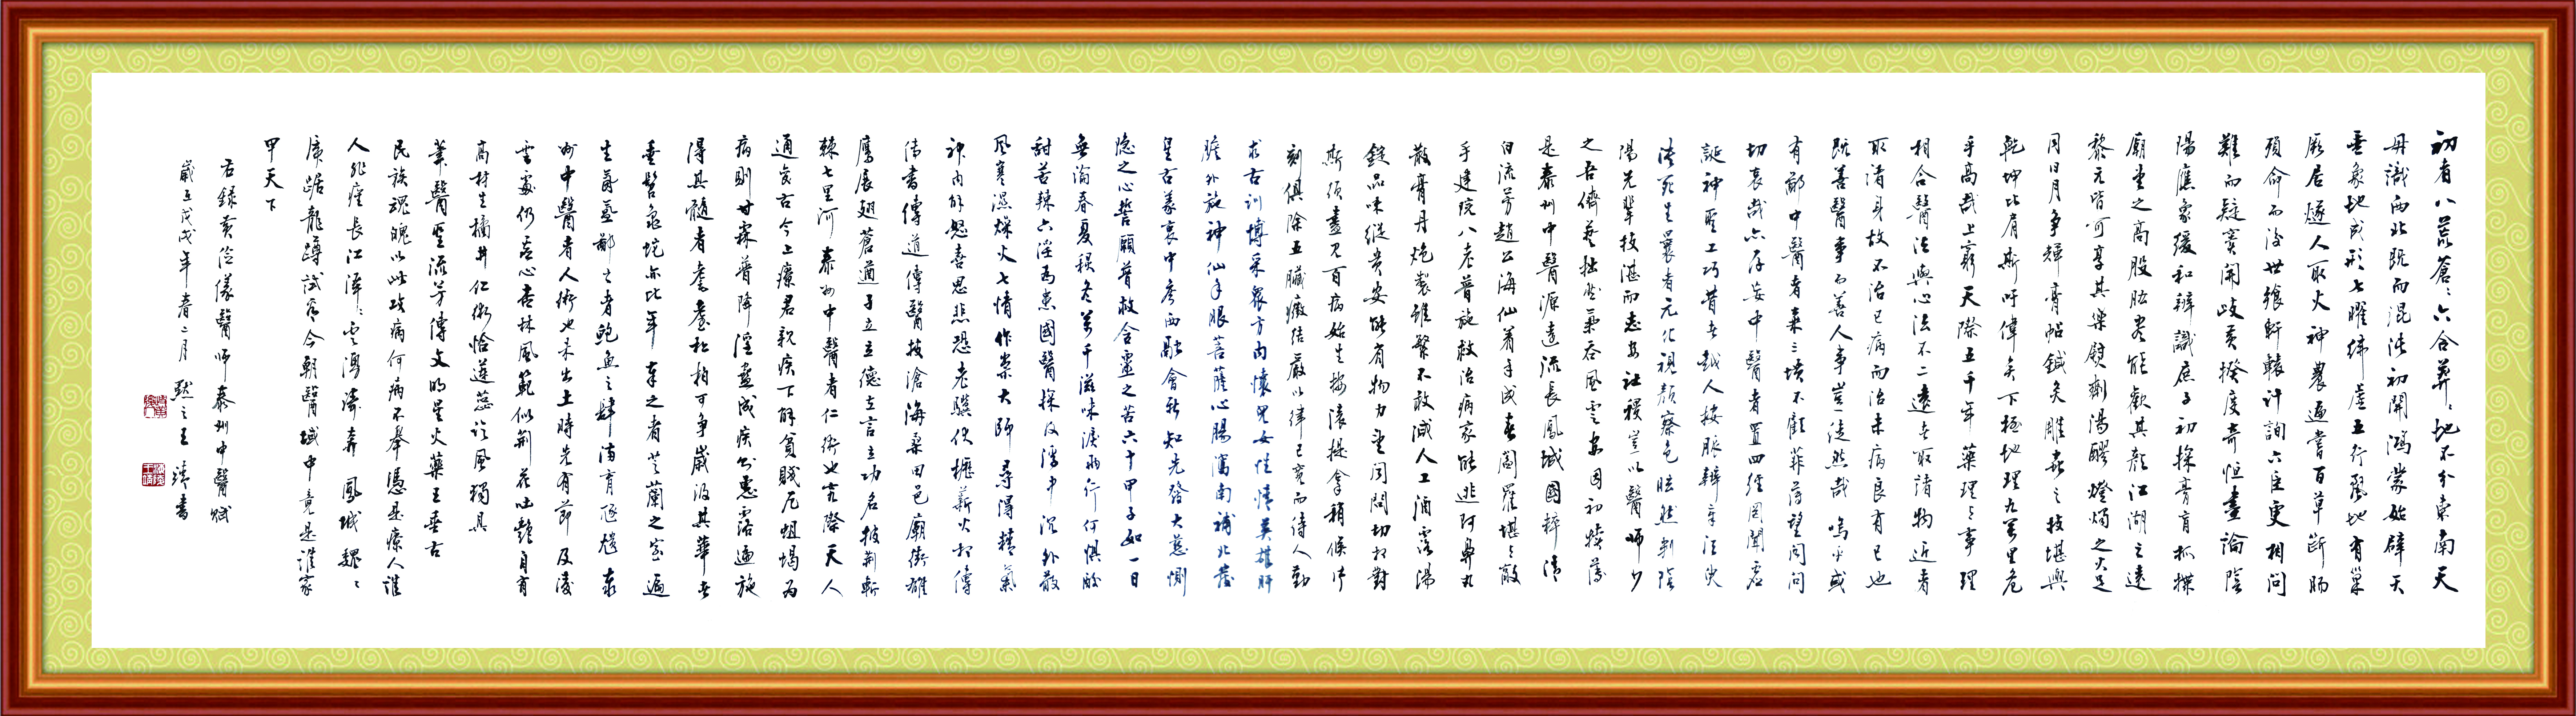 初者八荒蒼々六合莽々地不分東南天
毋識西北既而混沌初開鴻蒙始辟天
垂象地成形七曜緯虛五行麗地有巢
居燧人取火神農遍嘗百草斷腸
殞命而後世飨軒轅計詢六臣更相問
難而疑竇開歧黃揆度奇恒晝論陰
陽應象緩和辨識庶子初探膏肓抓揲
廟堂之高股肱盡能歡其顏江湖之遠
黎元皆可享其樂熨劑湯醪燈燭之火足
同日月爭輝膏帖鍼灸雕蟲之技堪與
乾坤比肩斯吁偉矣下極地理九萬里危
乎高哉上窮天際五千年藥理々事理
相合醫法與心法不二遠者取諸物近者
取諸身故不治已病而治未病良有已也
既善醫事而善人事豈徒然哉嗚乎或
有鄙中醫者棄三墳不顧菲薄望聞問
切哀哉六存妄中醫者置四經罔聞宕
誕神聖工巧昔者越人按脈辨章法央
決死生曩者元化視顏察色眩然判陰
陽先輩技湛而志安社稷豈以醫師少
之吾儕藝拙然氣吞風雲安因初犢薄
是泰州中醫源遠流長鳳城國粹清
白流芳趙公海仙著手成春閻羅堪々敵
手建院八老普施救治病家能逃阿鼻丸
散膏丹炮製雖繁不敢減人工酒露湯
錠品味縱貴安能省物力望聞問切招對
斯須盡見百病始生按滾提拿稍候片
刻俱除五臟癥結嚴以律已寬而待人勤
求古訓博采眾方內懷兒女佳情英雄肝
膽外施神仙手眼菩薩心腸瀉南補北蓋
呈古義衷中參西融會新知先發大慈惻
隐之心誓願普救含靈之苦六十甲子如一日
無論春夏稷冬萬千滋味淚雨行何懼酸
甜苦辣六淫為患國醫探伐濡中沉外散
風寒濕燥火七情作祟大師尋得精氣
神內解怒喜思悲恐老驥伏櫪薪火相傳
傳書傳道傳醫技滄海桑田邑廟街雛
鷹展翅蒼遒子立立德立言立功名披荊斬
棘七里河泰州中醫者仁術也究際天人
通變古今上療君親疾下解貧賤厄蛆蝎為
病則甘霖普降淫蠱成疾則惠露遍施
得其髓者耄耋秋柏可爭歲汲其華者
垂髫龜蛇亦比年辜之者芝蘭之室遍
生蒼蠅鄙之者鮑魚之肆滿育伍虺泰
州中醫者人術也未出土時先有節及凌
雲處仍虛心杏林風範似荊花吐艷自有
高材生橘井仁術恰蓮蕊迎風獨具
華醫聖流芳傳文明星火藥王垂古
民族魂魄以此攻病何病不舉憑是療人誰
人非瘥長江渾々雲湧濤奔鳳城巍々
虎踞龍蹲試看今朝醫域中竟是誰家
甲天下
右錄黃從儀醫師泰州中醫賦
歲在戊戌年春二月 默之王靖書